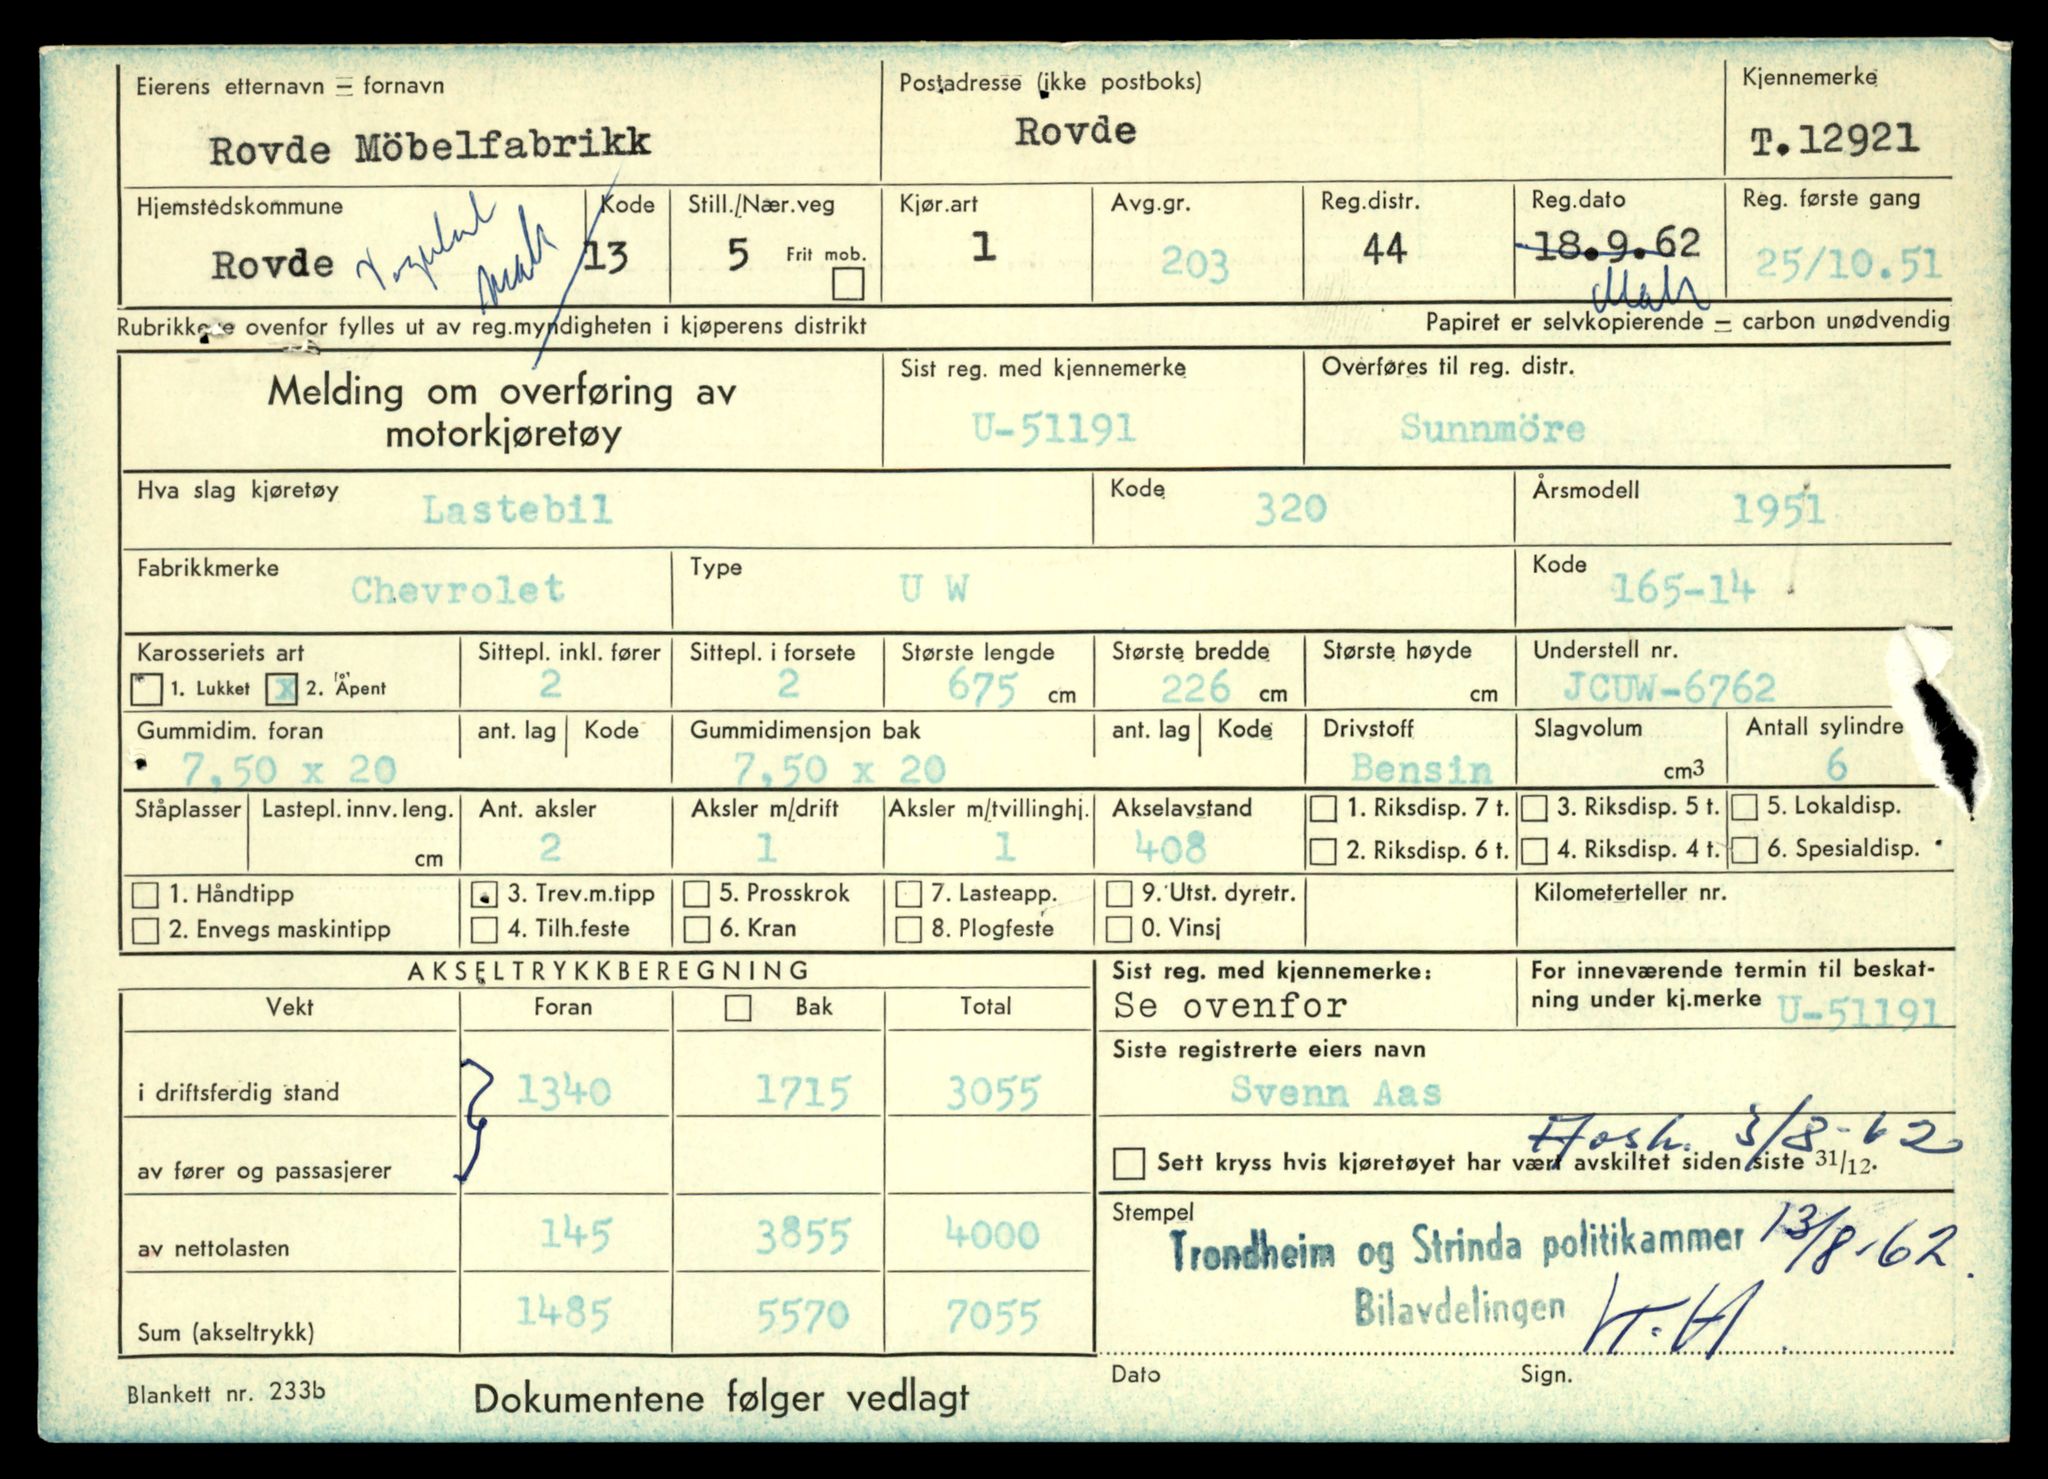 Eierens etternavn — fornavn
Postadresse (ikke postboks)
Kjennemerke
Rovde Möbelfabrikk
Rovde
T.12921
Hjemstedskommune
Kode
Still./Nær.veg
Kjør.art
Avg.gr.
Reg.distr.
Reg.dato
Reg. første gang
Rovde
13
5 Frit mob.
1
203
44
18.9.62
25/10.51
Rubrikkene ovenfor fylles ut av reg.myndigheten i kjøperens distrikt
Papiret er selvkopierende — carbon unødvendig
Melding om overføring av
motorkjøretøy
Sist reg. med kjennemerke
U-51191
Overføres til reg. distr.
Sunnmöre
Hva slag kjøretøy
Lastebil
Kode
320
Årsmodell
1951
Fabrikkmerke
Chevrolet
Type
U W
Kode
165-14
Karosseriets art
Sittepl. inkl. fører
Sittepl. i forsete
Største lengde
Største bredde
Største høyde
Understell nr.
1. Lukket x 2. Åpent
2
2
675 cm
226 cm
cm
JCUW-6762
Gummidim. foran
ant. lag
Kode
Gummidimensjon bak
ant. lag
Kode
Drivstoff
Slagvolum
Antall sylindre
7,50 x 20
7,50 x 20
Bensin
cm3
6
Ståplasser
Lastepl. innv. leng.
Ant. aksler
Aksler m/drift
Aksler m/tvillinghj.
Akselavstand
1. Riksdisp. 7 t.
3. Riksdisp. 5 t.
5. Lokaldisp.
cm
2
1
1
408
2. Riksdisp. 6 t.
4. Riksdisp. 4 t.
6. Spesialdisp.
1. Håndtipp
3. Trev.m.tipp
5. Prosskrok
7. Lasteapp.
9. Utst. dyretr.
Kilometerteller nr.
2. Envegs maskintipp
4. Tilh.feste
6. Kran
8. Plogfeste
0. Vinsj
AKSELTRYKKBEREGNING
Vekt
Foran
Bak
Total
i driftsferdig stand
1340
1715
3055
av fører og passasjerer
av nettolasten
145
3855
4000
Sum (akseltrykk)
1485
5570
7055
Sist reg. med kjennemerke:
Se ovenfor
For inneværende termin til beskat-
ning under kj.merke U-51191
Siste registrerte eiers navn
Svenn Aas
3/8-62
Sett kryss hvis kjøretøyet har vært avskiltet siden siste 31/12.
Stempel
Trondheim og Strinda politikammer 13/8-62.
Bilavdelingen
Dato
Sign.
Blankett nr. 233b
Dokumentene følger vedlagt